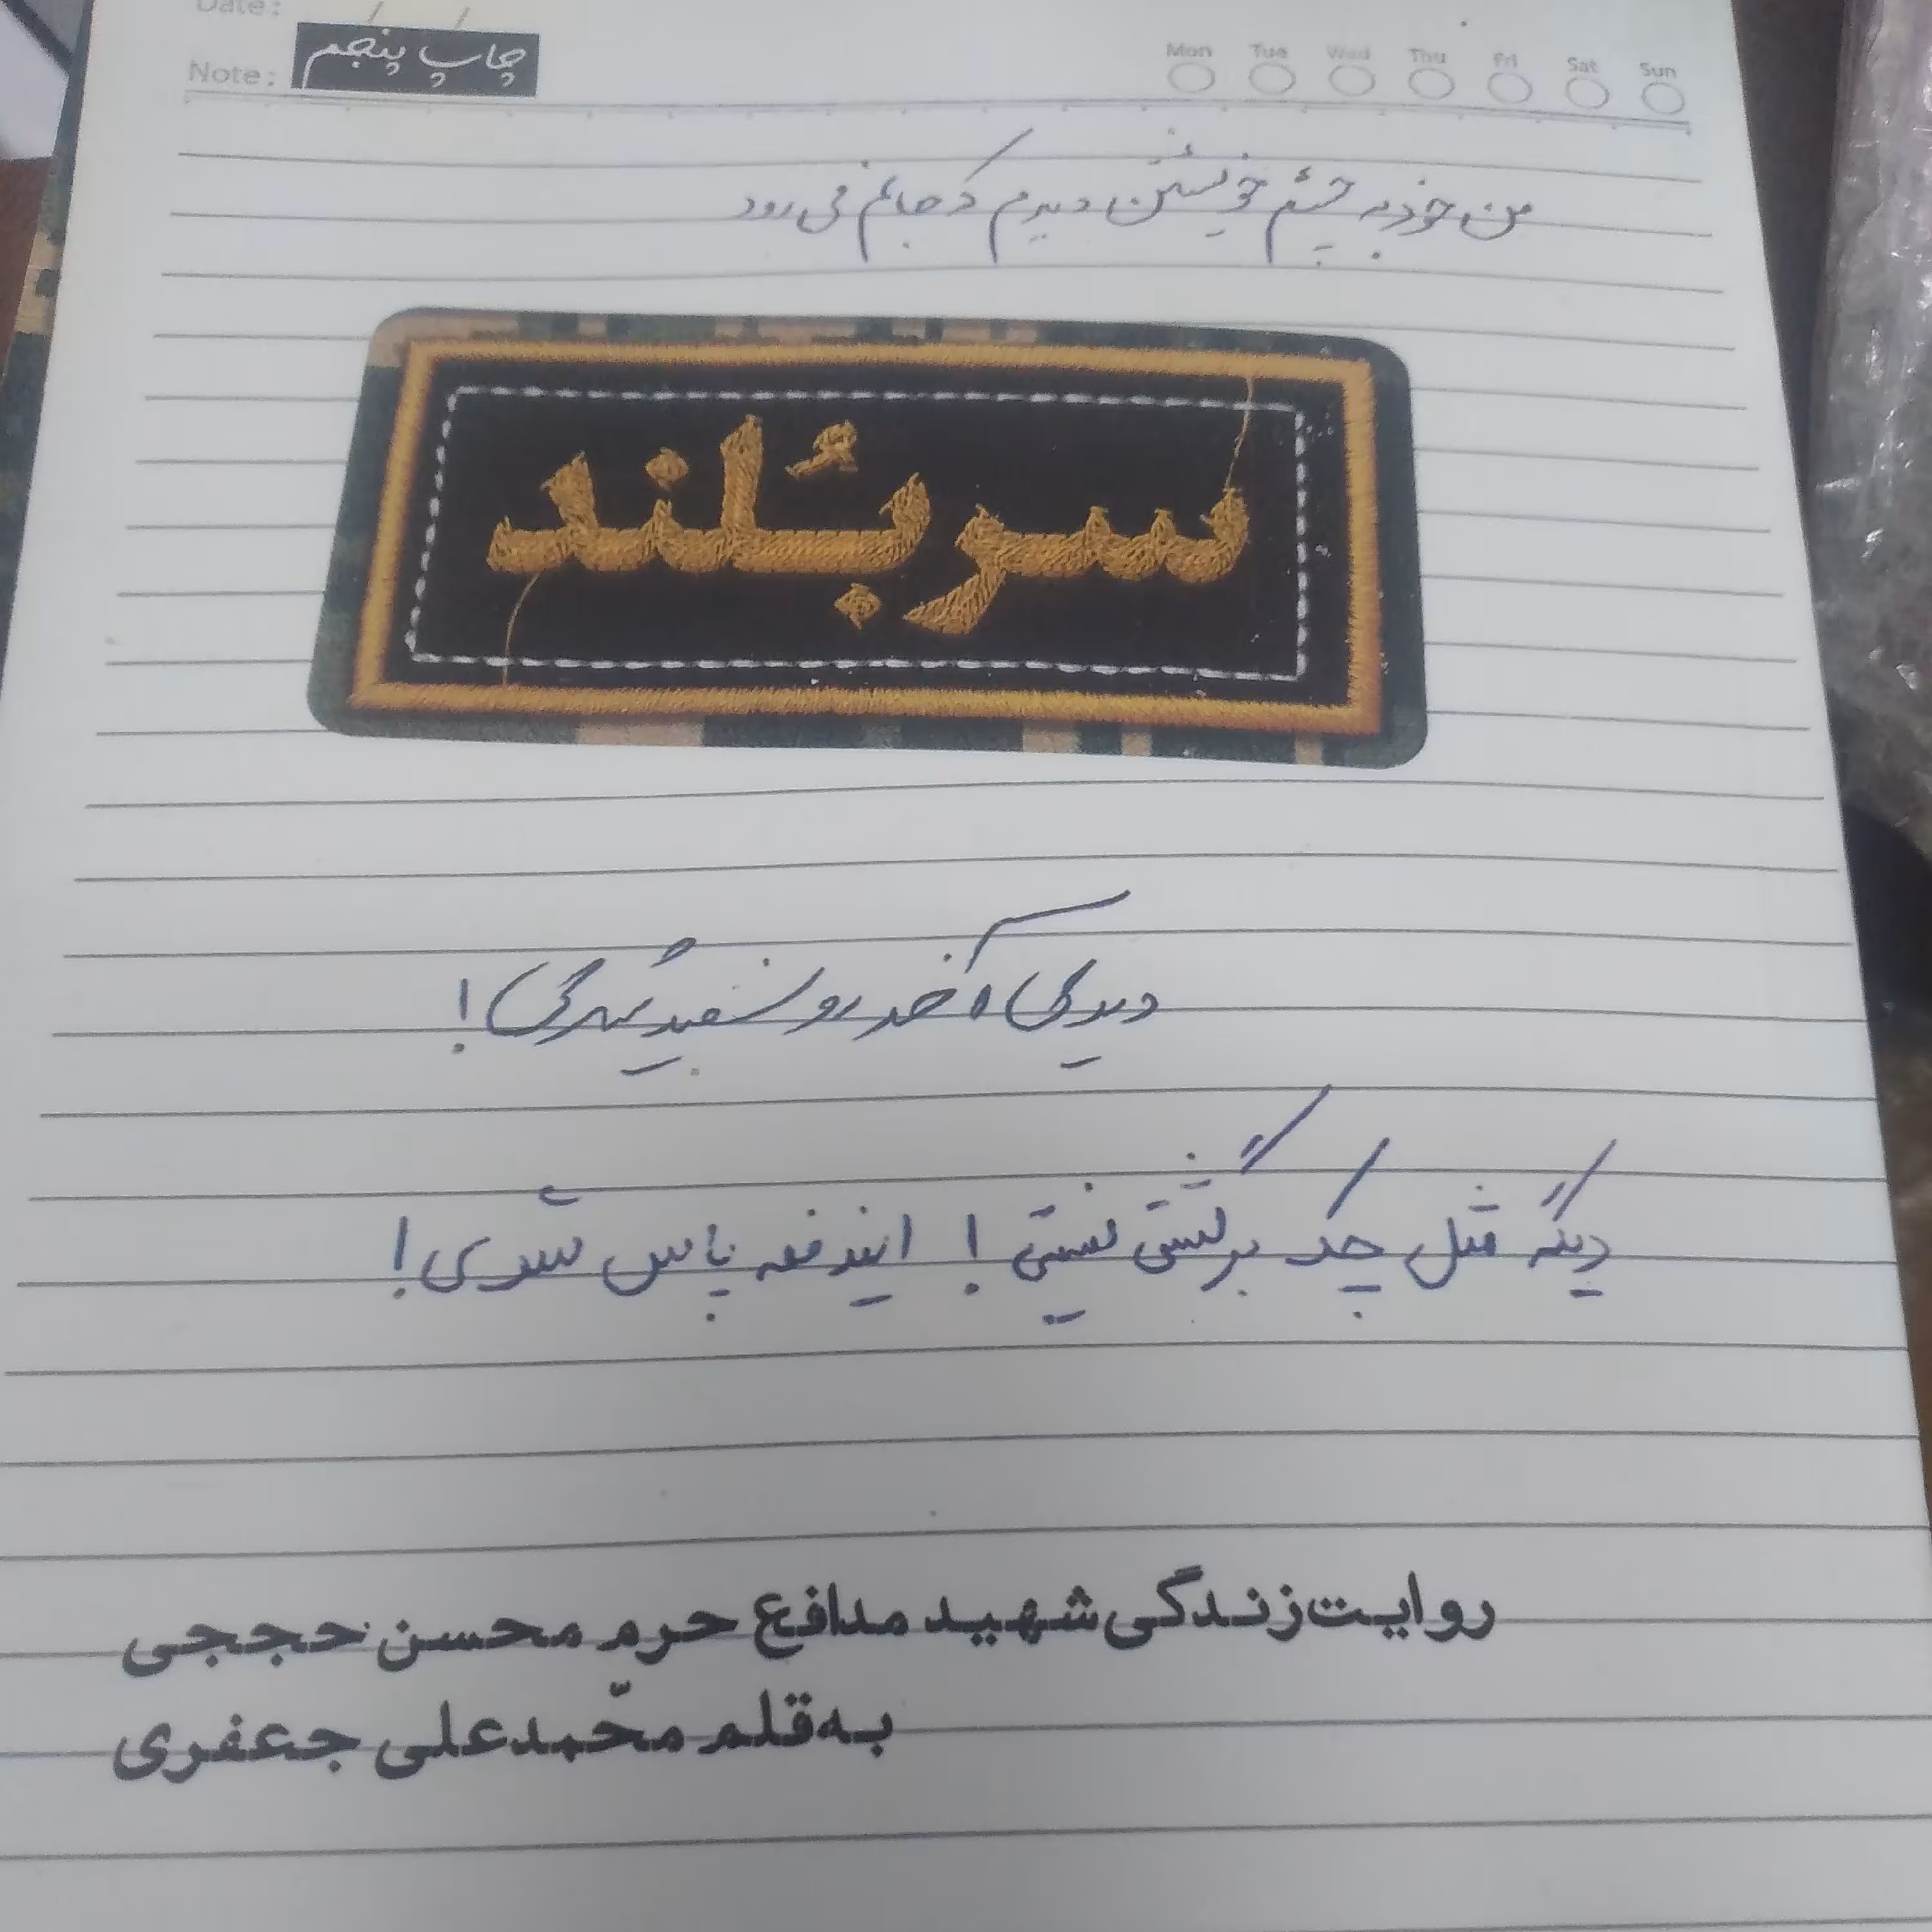 Date: / /
Note: چاپ پنجم
Mon Tue Wed Thu Fri Sat Sun
من خود به چشم خویشتن دیدم که جانم می‌رود
سربُلند
دیدی آخر رو سفید شدی!
دیگه مثل چک برگشتی نیستی! ایندفعه پاس شدی!
روایت زندگی شهید مدافع حرم محسن حججی
به‌قلم محّمدعلی جعفری